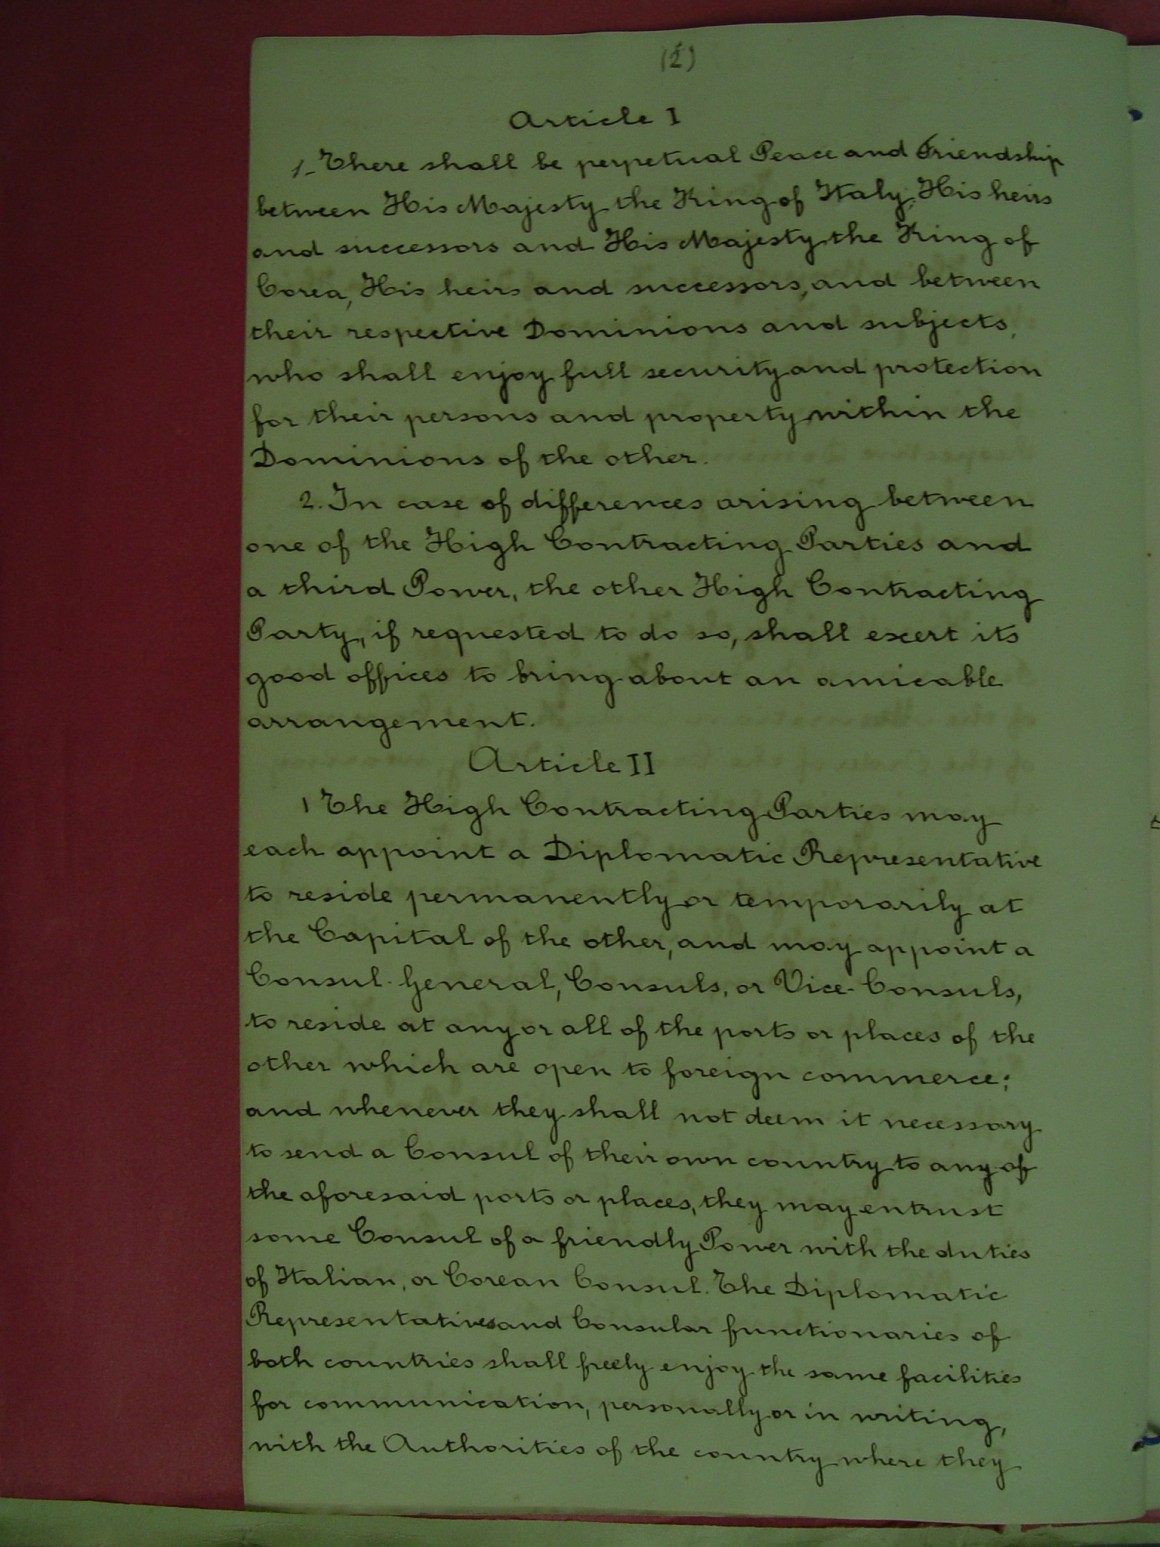 (2)
Article I
1_ There shall be perpetual Peace and Friendship
between His Majesty the King of Italy, His heirs
and successors and His Majesty the King of
Corea, His heirs and successors, and between
their respective Dominions and subjects,
who shall enjoy full security and protection
for their persons and property within the
Dominions of the other.
2. In case of differences arising between
one of the High Contracting Parties and
a third Power, the other High Contracting
Party, if requested to do so, shall exert its
good offices to bring about an amicable
arrangement.
Article II
1 The High Contracting Parties may
each appoint a Diplomatic Representative
to reside permanently or temporarily at
the Capital of the other, and may appoint a
Consul-General, Consuls, or Vice-Consuls,
to reside at any or all of the ports or places of the
other which are open to foreign commerce;
and whenever they shall not deem it necessary
to send a Consul of their own country to any of
the aforesaid ports or places, they may entrust
some Consul of a friendly Power with the duties
of Italian, or Corean Consul. The Diplomatic
Representatives and Consular functionaries of
both countries shall freely enjoy the same facilities
for communication, personally or in writing,
with the Authorities of the country where they